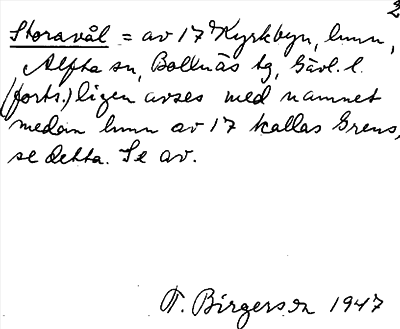 2
Storavål = av 17 Kyrkbyn, hmn,
Alfta sn, Bollnäs tg, Gävl. l.
(forts.) ligen avses med namnet
medan hmn av 17 kallas Grens,
se detta. Se av.
T. Birgersson 1947